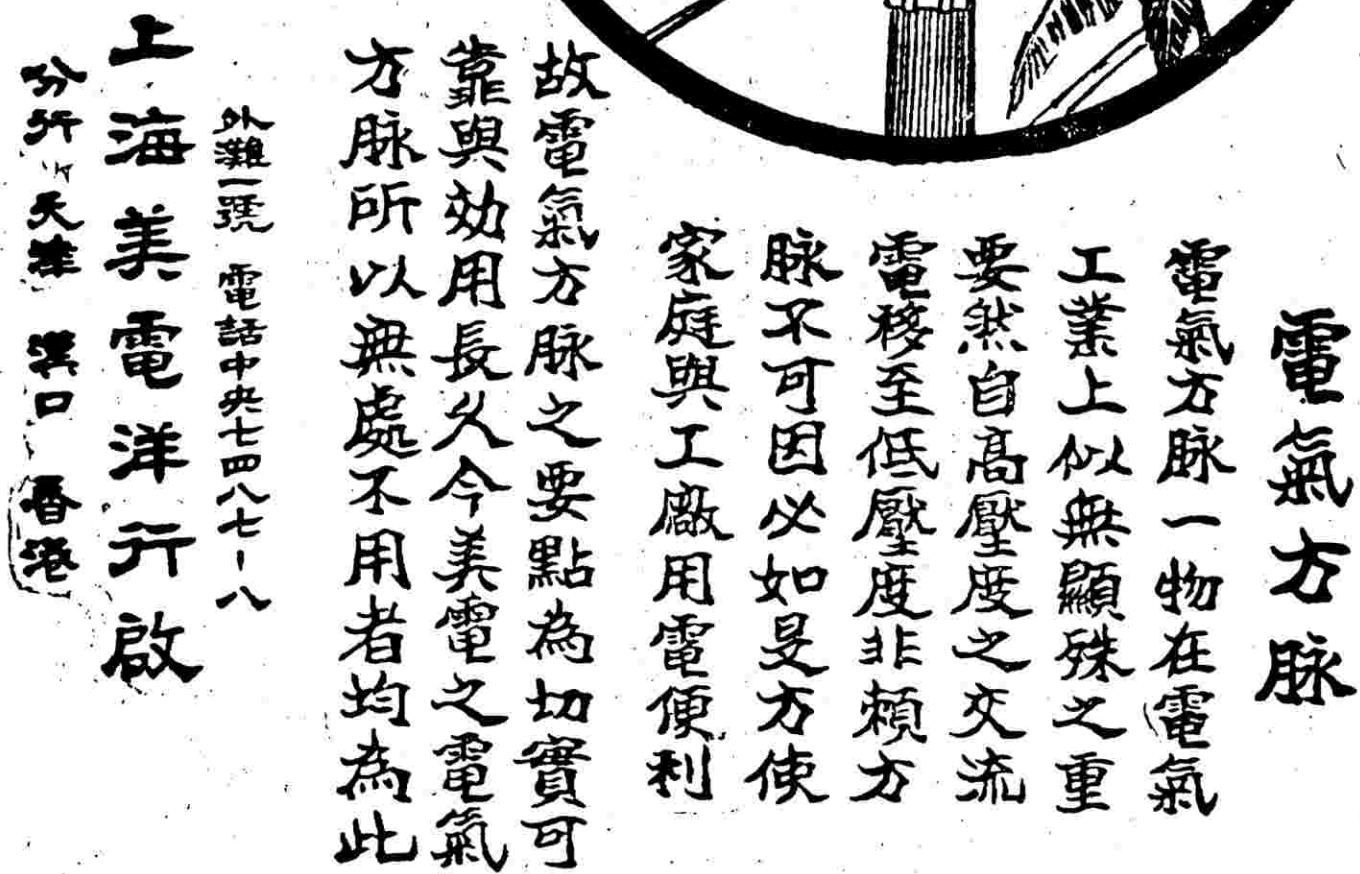 電氣方脉
電氣方脉一物在電氣
工業上似無顯殊之重
要然自高壓度之交流
電移至低壓度非賴方
脉不可因必如是方使
家庭與工廠用電便利
故電氣方脉之要點為切實可
靠與効用長久今美電之電氣
方脉所以無處不用者均為此
外灘一號 電話中央七四八七-八
上海美電洋行啟
分行 天津 漢口 香港